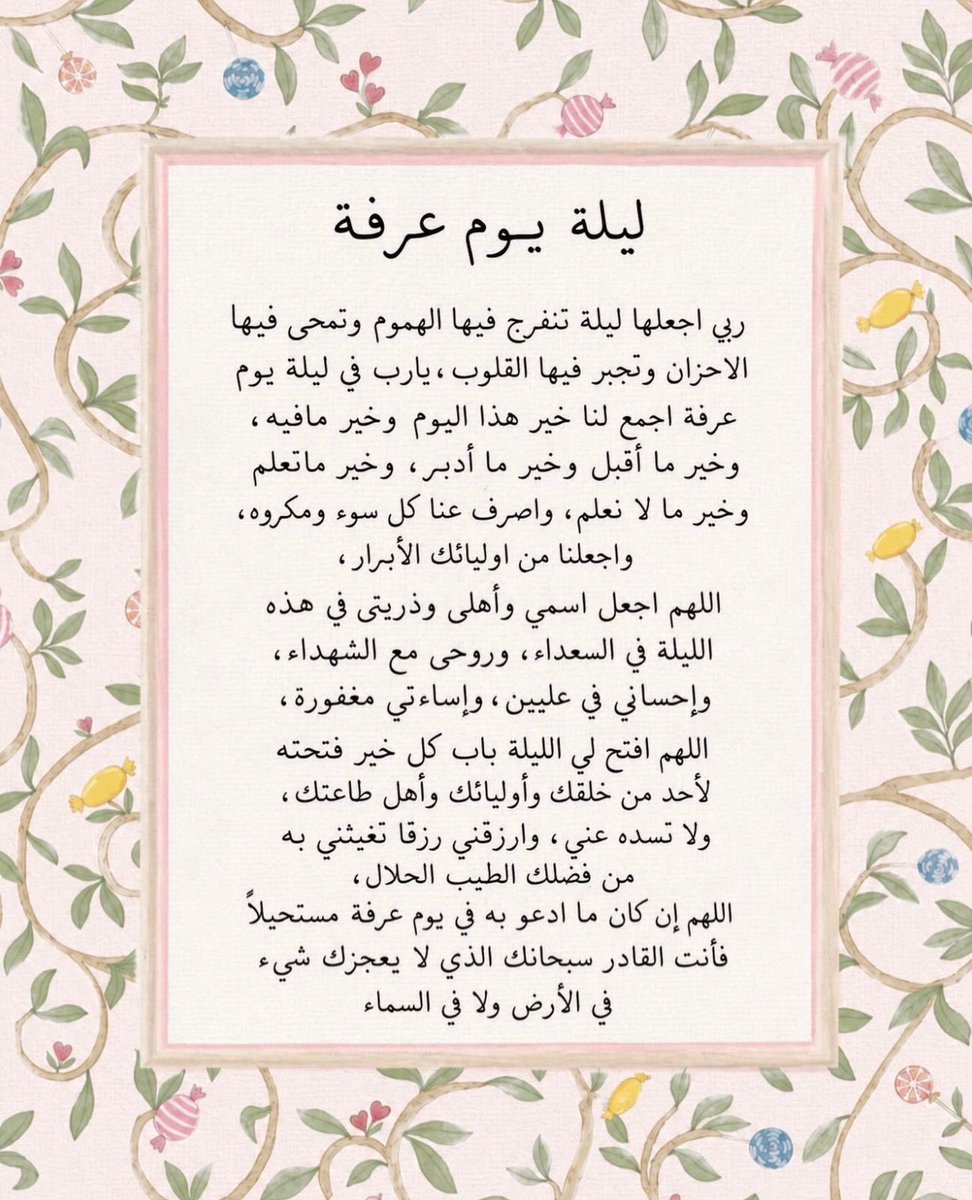 ليلة يوم عرفة
ربي اجعلها ليلة تنفرج فيها الهموم وتمحى فيها
الاحزان وتجبر فيها القلوب،يارب في ليلة يوم
عرفة اجمع لنا خير هذا اليوم وخير مافيه،
وخير ما أقبل وخير ما أدبر، وخير ماتعلم
وخير ما لا نعلم، واصرف عنا كل سوء ومكروه،
واجعلنا من اوليائك الأبرار،
اللهم اجعل اسمي وأهلى وذريتى في هذه
الليلة في السعداء، وروحى مع الشهداء،
وإحساني في عليين،وإساءتي مغفورة،
اللهم افتح لي الليلة باب كل خير فتحته
لأحد من خلقك وأوليائك وأهل طاعتك،
ولا تسده عني، وارزقني رزقا تغيثني به
من فضلك الطيب الحلال،
اللهم إن كان ما ادعو به في يوم عرفة مستحيلاً
فأنت القادر سبحانك الذي لا يعجزك شيء
في الأرض ولا في السماء